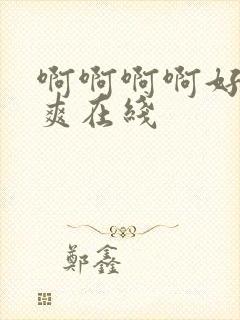 啊啊啊啊好
爽在綫
鄭鑫